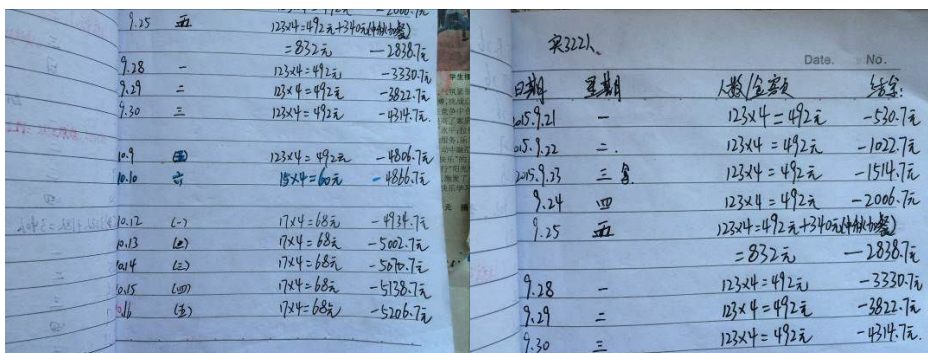 9.25 五 123×4=492元+340元(中秋加餐)
=832元 -2838.7元
9.28 一 123×4=492元 -3330.7元
9.29 二 123×4=492元 -3822.7元
9.30 三 123×4=492元 -4314.7元.
10.9 五 123×4=492元 -4806.7元
10.10 六 15×4=60元 -4866.7元
10.12 (一) 17×4=68元 -4934.7元
10.13 (二) 17×4=68元 -5002.7元
10.14 (三) 17×4=68元 -5070.7元
10.15 (四) 17×4=68元 -5138.7元
10.16 (五) 17×4=68元 -5206.7元
Date. No.
日期 星期 人数/金额 结余:
2015.9.21 一 123×4=492元 -530.7元
2015.9.22 二. 123×4=492元 -1022.7元
2015.9.23 三 123×4=492元 -1514.7元
9.24 四 123×4=492元 -2006.7元
9.25 五 123×4=492元+340元(中秋加餐)
=832元 -2838.7元
9.28 一 123×4=492元 -3330.7元
9.29 二 123×4=492元 -3822.7元
9.30 三 123×4=492元 -4314.7元.